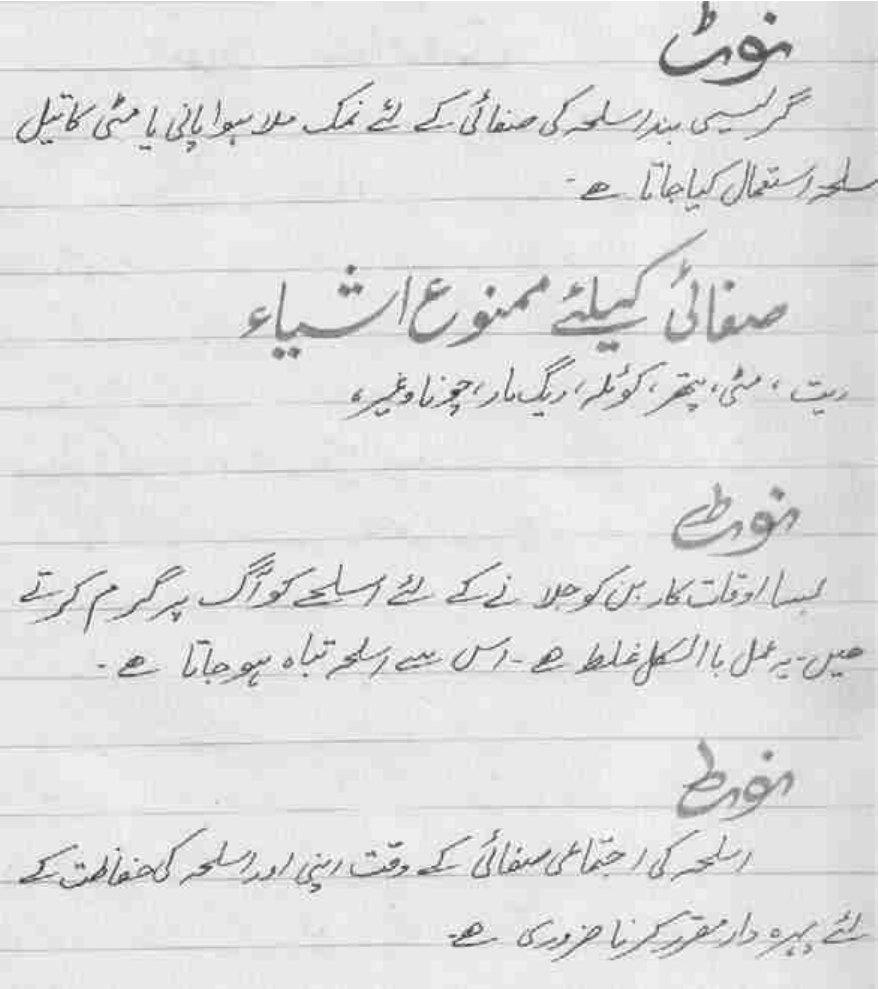 نوٹ
گریسی بند اسلحہ کی صفائی کے لئے نمک ملا ہوا پانی یا مٹی کا تیل
سلحہ استعمال کیا جاتا ھے۔
صفائی کیلئے ممنوع اشیاء
ریت ، مٹی، پتھر، کوئلہ، ریگ مار، چونا وغیرہ
نوٹ
بسا اوقات کاربن کو جلانے کے لئے اسلحے کو آگ پر گرم کرتے
ھیں۔ یہ عمل باالکل غلط ھے۔ اس سے اسلحہ تباہ ہو جاتا ھے۔
نوٹ
اسلحہ کی اجتماعی صفائی کے وقت اپنی اور اسلحہ کی حفاظت کے
لئے پہرہ دار مقرر کرنا ضروری ھے۔